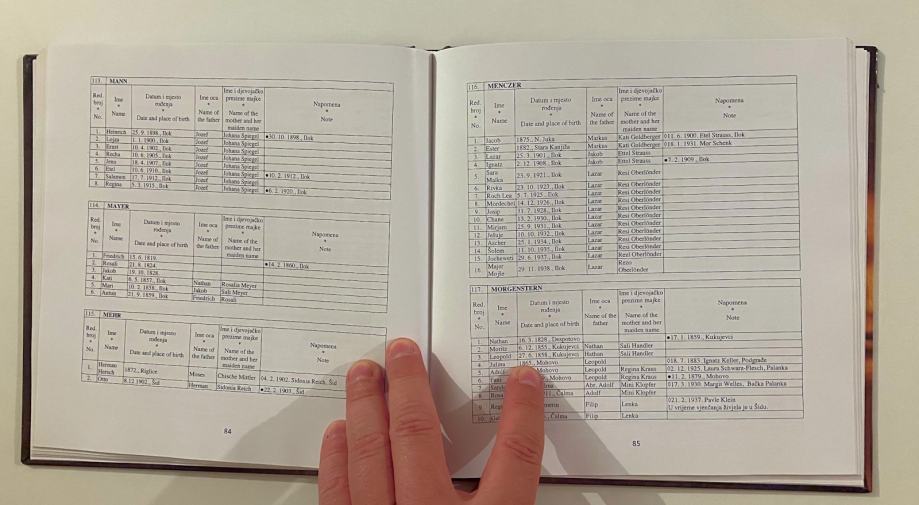 113. MANN
Red. broj * No. Ime * Name Datum i mjesto rođenja * Date and place of birth Ime oca * Name of the father Ime i djevojačko prezime majke * Name of the mother and her maiden name Napomena * Note
1. Heinrich 25. 9. 1898., Ilok Jozef Johana Spiegel ●30. 10. 1898., Ilok
2. Lojza 1. 1. 1900., Ilok Jozef Johana Spiegel
3. Ernst 10. 4. 1902., Ilok Jozef Johana Spiegel
4. Rocha 10. 6. 1905., Ilok Jozef Johana Spiegel
5. Jens 18. 4. 1907., Ilok Jozef Johana Spiegel
6. Etel 10. 6. 1910., Ilok Jozef Johana Spiegel
7. Salamon 17. 7. 1912., Ilok Jozef Johana Spiegel ●10. 2. 1912., Ilok
8. Regina 5. 3. 1915., Ilok Jozef Johana Spiegel ●6. 2. 1920., Ilok
114. MAYER
Red. broj * No. Ime * Name Datum i mjesto rođenja * Date and place of birth Ime oca * Name of the father Ime i djevojačko prezime majke * Name of the mother and her maiden name Napomena * Note
1. Friedrich 15. 6. 1819.
2. Rosali 21. 8. 1824. ●14. 2. 1860., Ilok
3. Jakob 19. 10. 1828.
4. Kati 6. 5. 1857., Ilok Nathan Rosalia Meyer
5. Mari 10. 2. 1858., Ilok Jakob Sali Meyer
6. Antun 21. 9. 1859., Ilok Friedrich Rosali
115. MEHR
Red. broj * No. Ime * Name Datum i mjesto rođenja * Date and place of birth Ime oca * Name of the father Ime i djevojačko prezime majke * Name of the mother and her maiden name Napomena * Note
1. Herman Hersch 1872., Riglice Moses Chische Mahler 04. 2. 1902. Sidonia Reich, Šid
2. Otto 8.12 1902., Šid Herman Sidonia Reich ●22. 2. 1903., Šid
84
116. MENCZER
Red. broj * No. Ime * Name Datum i mjesto rođenja * Date and place of birth Ime oca * Name of the father Ime i djevojačko prezime majke * Name of the mother and her maiden name Napomena * Note
1. Jacob 1875., N. Juka Markus Kati Goldberger 011. 6. 1900. Etel Strauss, Ilok
2. Ester 1882., Stara Kanjiža Markus Kati Goldberger 018. 1. 1931. Mor Schenk
3. Lazar 25. 3. 1901., Ilok Jakob Ettel Strauss
4. Ignatz 2. 12. 1908., Ilok Jakob Ettel Strauss ●7. 2. 1909., Ilok
5. Sara Malka 23. 9. 1921., Ilok Lazar Resi Oberlönder
6. Rivka 23. 10. 1923., Ilok Lazar Resi Oberlönder
7. Roch Lea 5. 7. 1925., Ilok Lazar Resi Oberlönder
8. Mordechei 14. 12. 1926., Ilok Lazar Resi Oberlönder
9. Josip 31. 7. 1928., Ilok Lazar Resi Oberlönder
10. Chane 13. 2. 1930., Ilok Lazar Resi Oberlönder
11. Mirjam 25. 9. 1931., Ilok Lazar Resi Oberlönder
12. Jehuje 10. 10. 1932., Ilok Lazar Resi Oberlönder
13. Ascher 25. 1. 1934., Ilok Lazar Resi Oberlönder
14. Šolem 11. 10. 1935., Ilok Lazar Resi Oberlönder
15. Jochewet 29. 6. 1937., Ilok Lazar Resi Oberlönder
16. Major Mojfie 29. 11. 1938., Ilok Lazar Rezo Oberlönder
117. MORGENSTERN
Red. broj * No. Ime * Name Datum i mjesto rođenja * Date and place of birth Ime oca * Name of the father Ime i djevojačko prezime majke * Name of the mother and her maiden name Napomena * Note
1. Nathan 16. 3. 1828., Despotovo ●17. 1. 1859., Kukujevci
2. Moritz 6. 12. 1855., Kukujevci Nathan Sali Handler
3. Leopold 27. 6. 1858., Kukujevci Nathan Sali Handler
4. Julima 1865., Mohovo Leopold 018. 7. 1885. Ignatz Keller, Podgrađe
5. Mohovo Leopold Regina Kraus 02. 12. 1925. Laura Schwarz-Flesch, Palanka
6. Mohovo Leopold Regina Kraus ●11. 2. 1879., Mohovo
7. Abr. Adolf Mini Klopfer 017. 3. 1930. Margit Welles, Bačka Palanka
8. Rosa Čalma Adolf Mini Klopfer
9. Filip Lenka 021. 2. 1937. Pavle Klein
U vrijeme vjenčanja živjela je u Šidu.
10. Čalma Filip Lenka
85